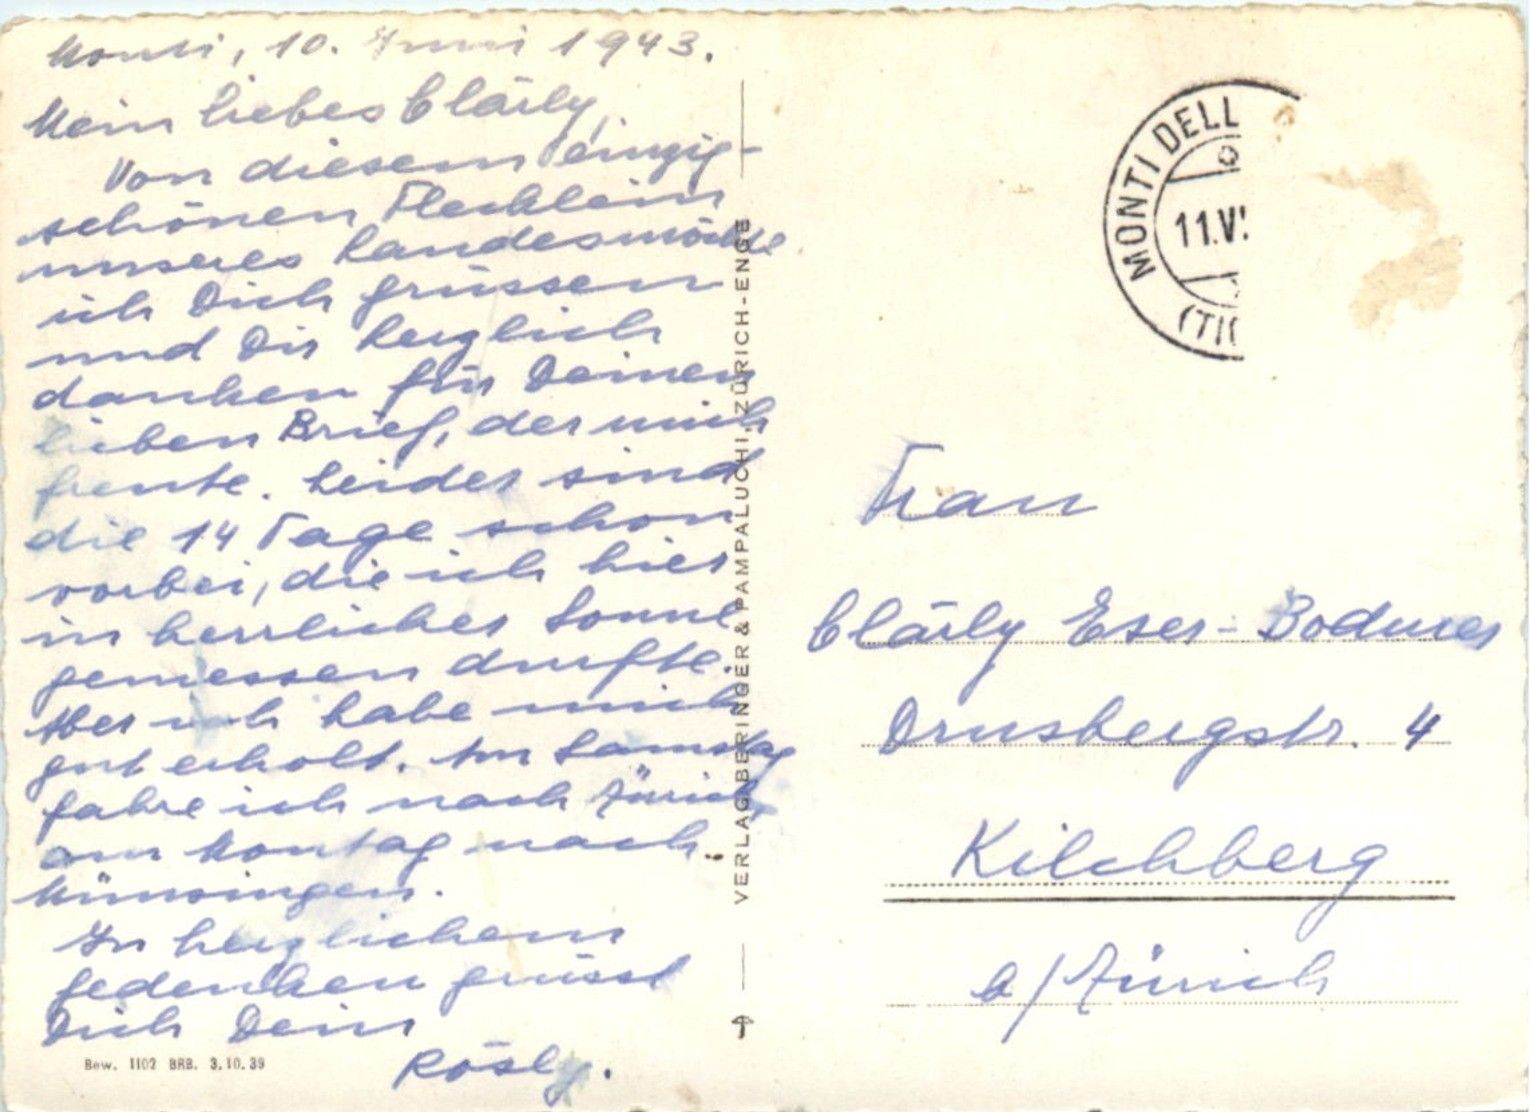 Monti, 10. Juni 1943.
Mein liebes Cläily,
Von diesem einzig-
schönen Flecklein
unseres Landes möchte
ich Dich grüssen
und Dir herzlich
danken für Deinen
lieben Brief, der mich
freute. Leider sind
die 14 Tage schon
vorbei, die ich hier
in herrlicher Sonne
geniessen durfte.
Aber ich habe mich
gut erholt. Am Samstag
fahre ich nach Zürich,
am Montag nach
Münsingen.
In herzlichem
Gedenken grüsst
Dich Dein
Rösly.
Bew. 1102 BRB. 3.10.39
VERLAG BERINGER & PAMPALUCHI, ZÜRICH-ENGE
MONTI DELL
11.VI
(TIC
Frau
Cläily Eser-Bodmer
Drusbergstr. 4
Kilchberg
b/Zürich